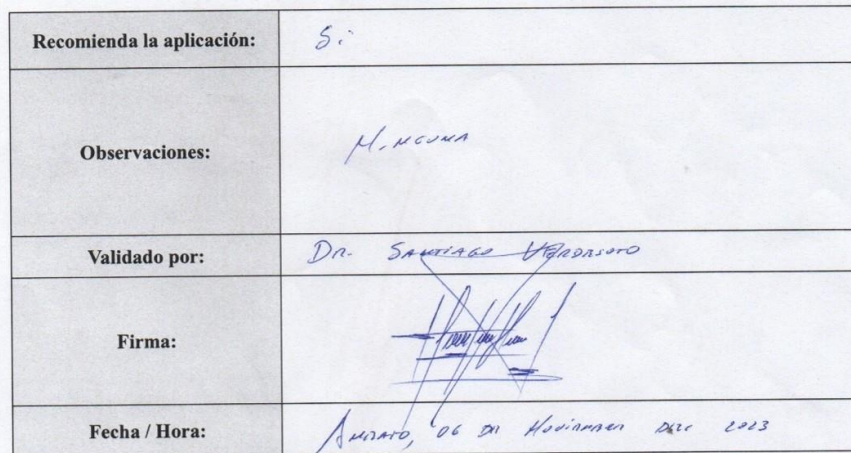 Recomienda la aplicación: Si
Observaciones: Ninguna
Validado por: Dr. Santiago Verdesoto
Firma:
Fecha / Hora: Ambato, 06 de Noviembre del 2023